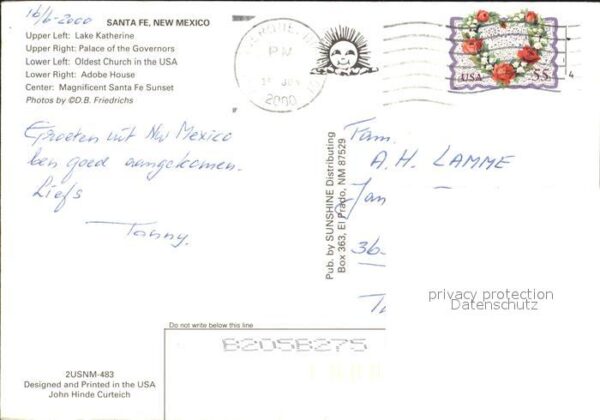 16/6-2000
SANTA FE, NEW MEXICO
Upper Left: Lake Katherine
Upper Right: Palace of the Governors
Lower Left: Oldest Church in the USA
Lower Right: Adobe House
Center: Magnificent Santa Fe Sunset
Photos by ©D.B. Friedrichs
Groeten uit New Mexico
ben goed aangekomen.
Liefs
Tanny.
PM
JUN
2000
USA 55
4
Pub. by SUNSHINE Distributing
Box 363, El Prado, NM 87529
Fam.
A.H. LAMME
Jan
36-
privacy protection
Datenschutz
Do not write below this line
B205B275
2USNM-483
Designed and Printed in the USA
John Hinde Curteich